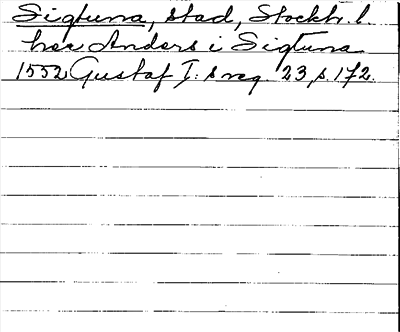 Sigtuna, stad, Stockh. l.
her Anders i Sigtuna
1552 Gustaf I:s reg. 23 s. 172.